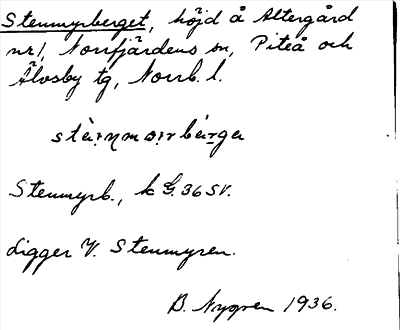 Stenmyrberget, höjd å Altergård
nr 1, Norrfjärdens sn, Piteå och
Älvsby tg, Norrb. l.
Stenmyrb., k G. 36 SV.
Ligger V. Stenmyren.
B. Nygren 1936.